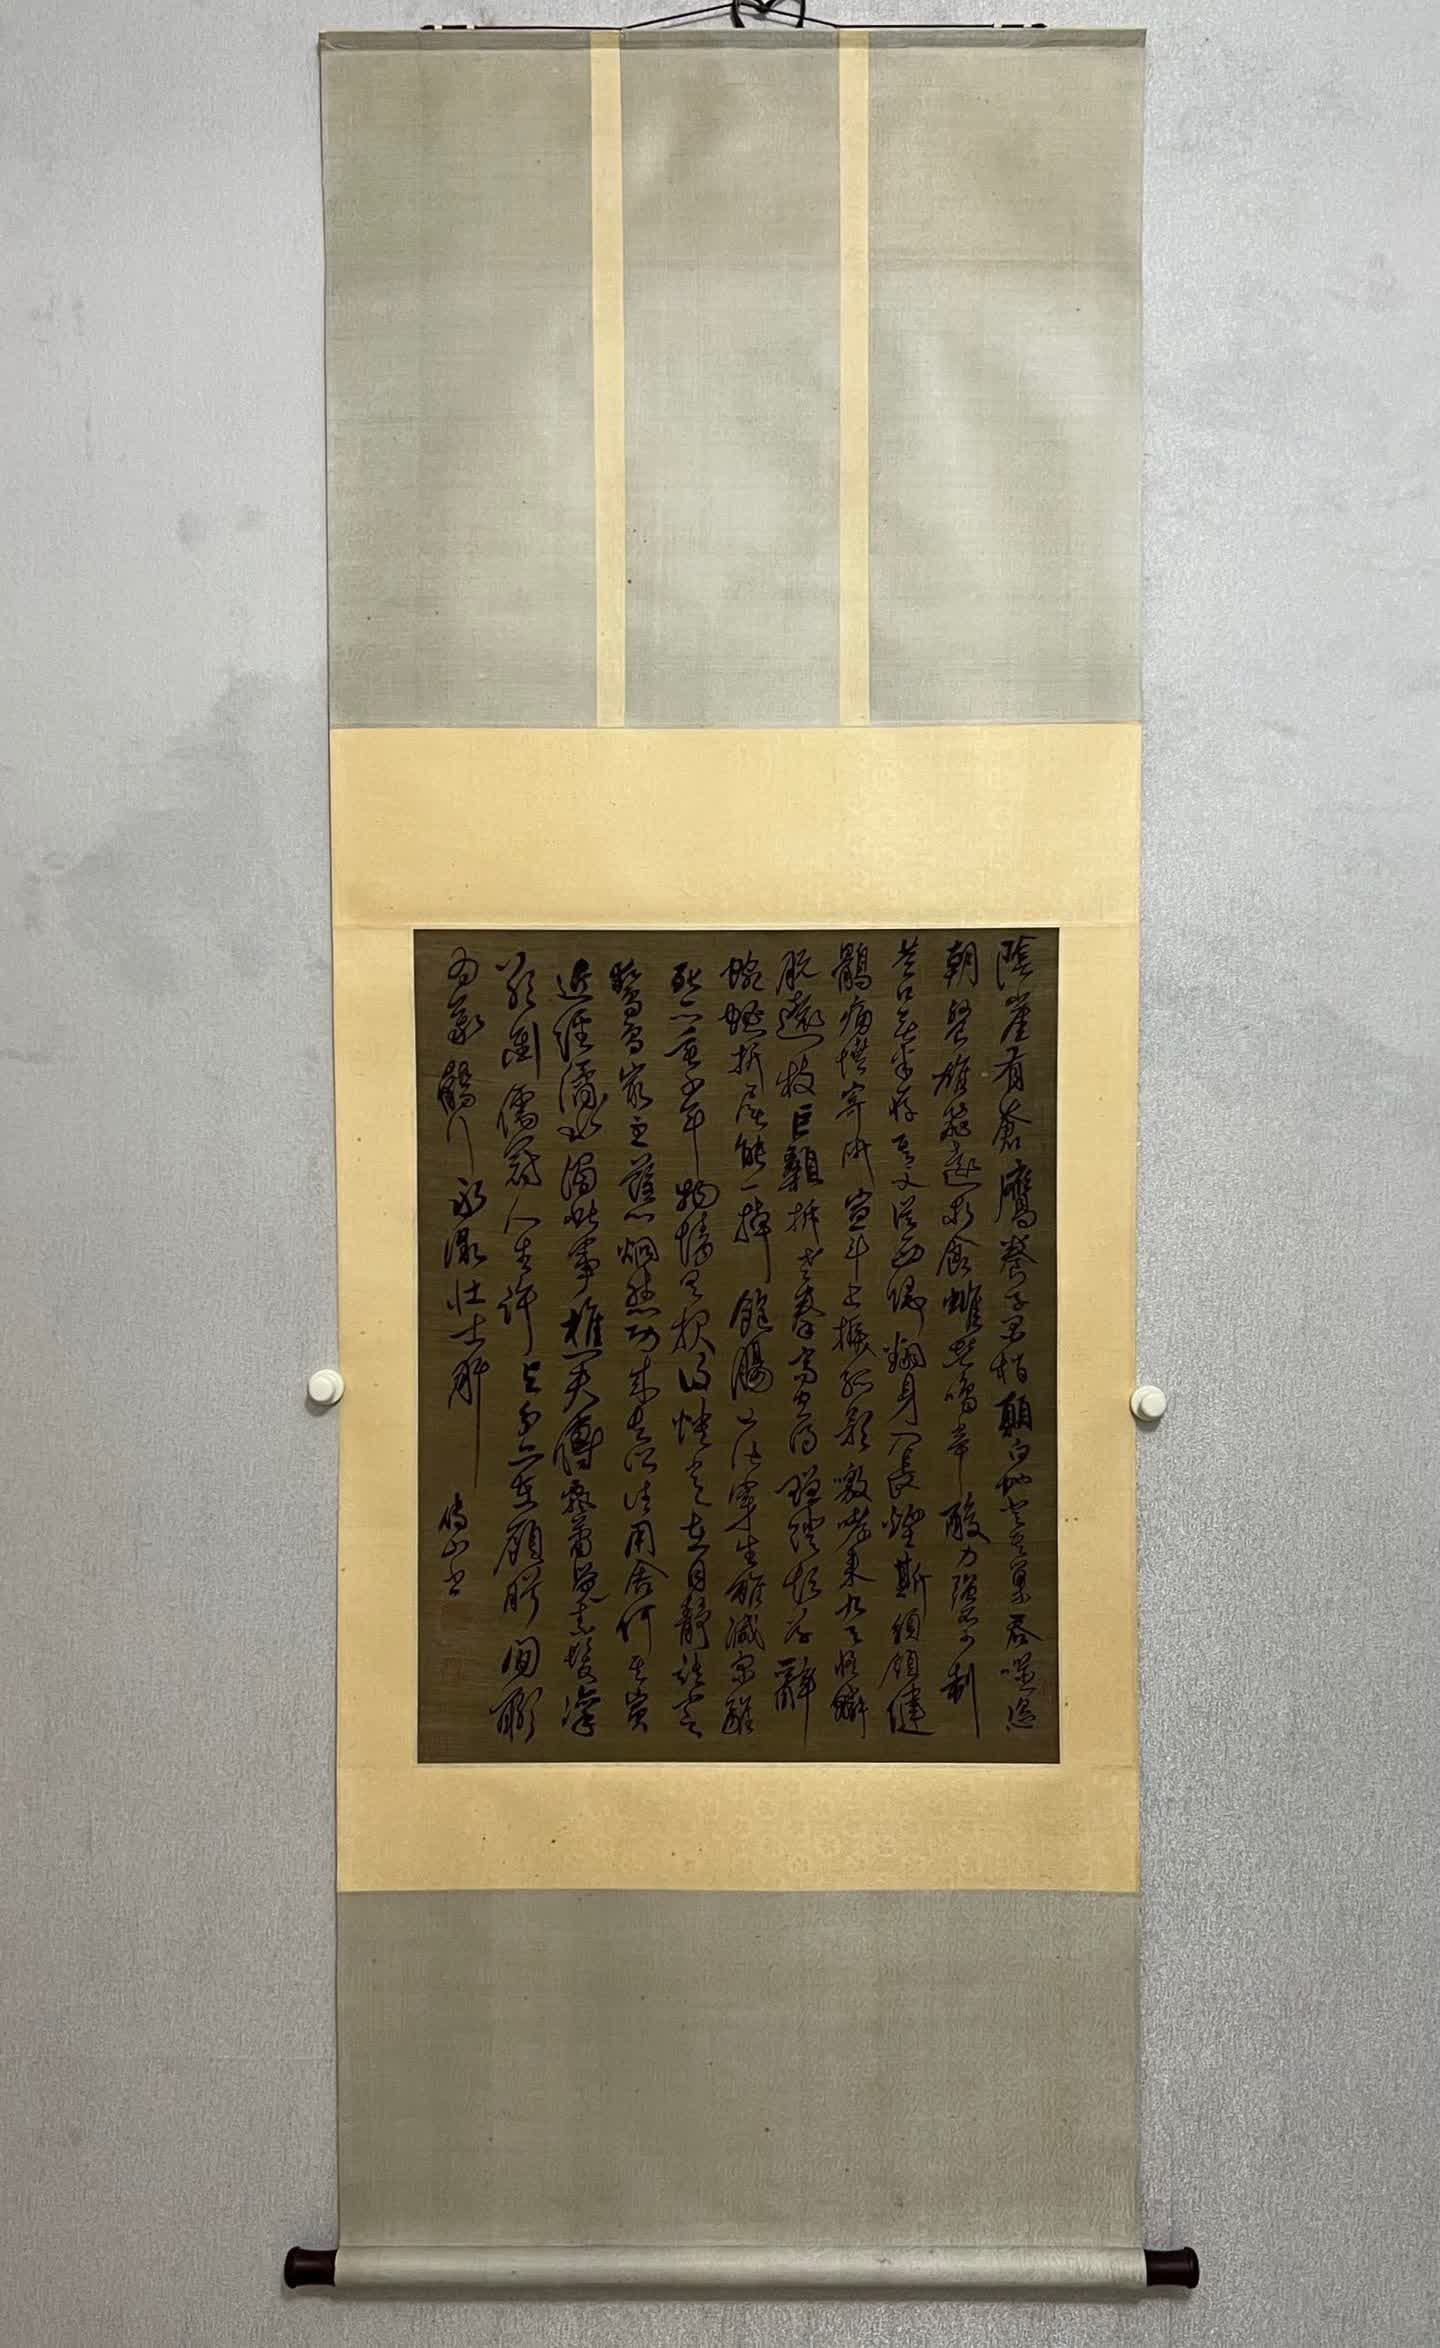 陰崖有蒼鷹養子黑柏顛白蛇登其巢吞噬恣
朝餐雄飛遠求食雌者鳴辛酸力強不可制
黃口無半存其父從西歸翻身入長煙斯須領健
鶻痛憤寄所宣斗上捩孤影噭哮來九天修鱗
脫遠枝巨顙拆老拳高空得蹭蹬短草辭
蜿蜒折尾能一掉飽腸已皆穿生雖滅眾雛
死亦垂千年物情有報復快意在目
鷙鳥最急難心炯然功成失所往用舍何其賢
近經潏水湄此事樵夫傳飄蕭覺素髮凜
欲衝儒冠人生許與分亦在顧盼間聊
為義鶻行永激壯士肝 傅山書